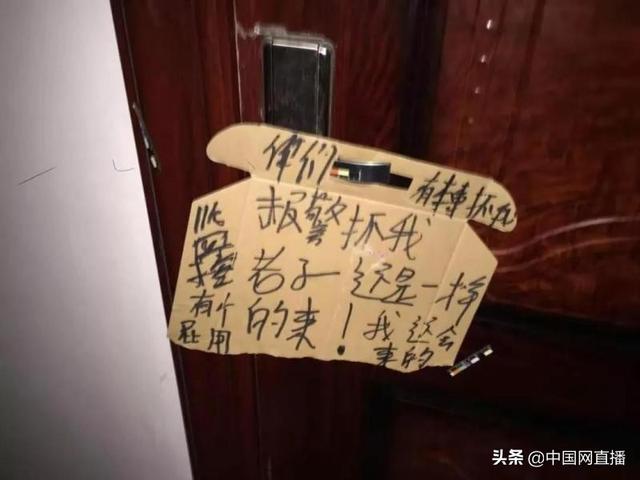 你们
有本事抓我
报警抓我
老子还是一样
的来！
我还会
来的
监控
有个
屁用
头条 @中国网直播